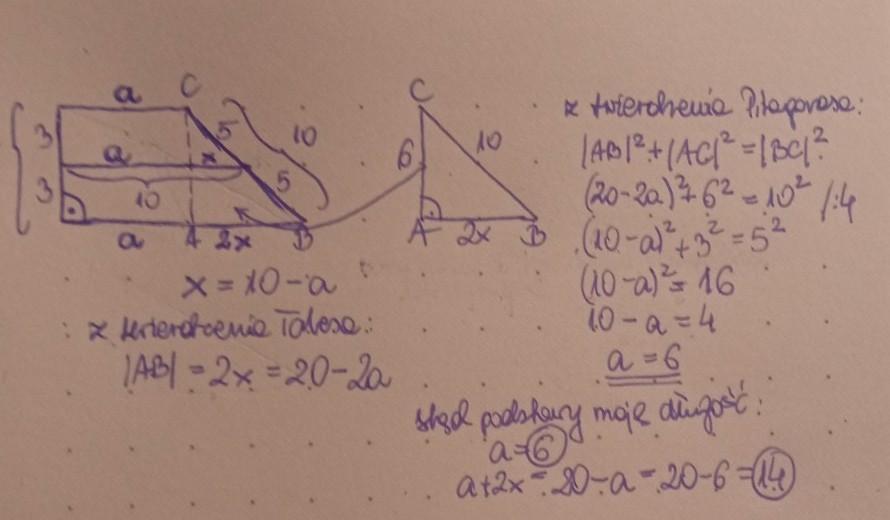 a C
3 5 10
a x
3 10 5
a A 2x B
x = 10 - a
z twierdzenia Talesa:
|AB| = 2x = 20 - 2a
C
6 10
A 2x B
z twierdzenia Pitagorasa:
|AB|² + |AC|² = |BC|²
(20-2a)² + 6² = 10² /:4
(10-a)² + 3² = 5²
(10-a)² = 16
10 - a = 4
a = 6
stąd podstawy mają długość:
a = 6
a + 2x = 20 - a = 20 - 6 = 14